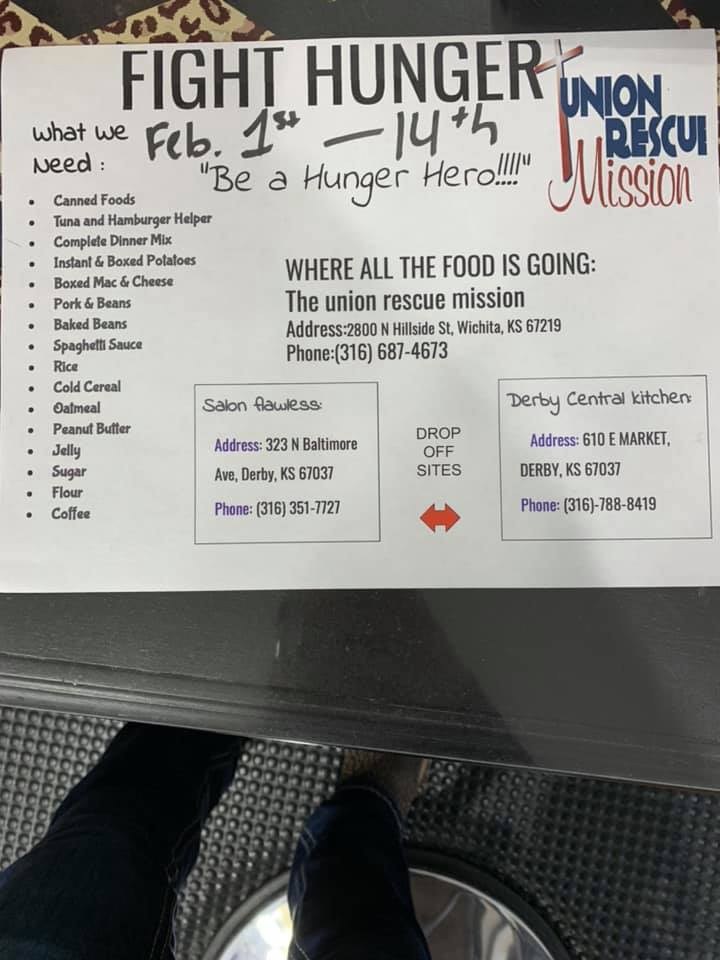 FIGHT HUNGER
UNION
RESCUE
Mission
What we
Need :
Feb. 1st — 14th
"Be a Hunger Hero!!!!"
• Canned Foods
• Tuna and Hamburger Helper
• Complete Dinner Mix
• Instant & Boxed Potatoes
• Boxed Mac & Cheese
• Pork & Beans
• Baked Beans
• Spaghetti Sauce
• Rice
• Cold Cereal
• Oatmeal
• Peanut Butter
• Jelly
• Sugar
• Flour
• Coffee
WHERE ALL THE FOOD IS GOING:
The union rescue mission
Address:2800 N Hillside St, Wichita, KS 67219
Phone:(316) 687-4673
Salon flawless:
Address: 323 N Baltimore
Ave, Derby, KS 67037
Phone: (316) 351-7727
DROP
OFF
SITES
Derby Central kitchen:
Address: 610 E MARKET,
DERBY, KS 67037
Phone: (316)-788-8419